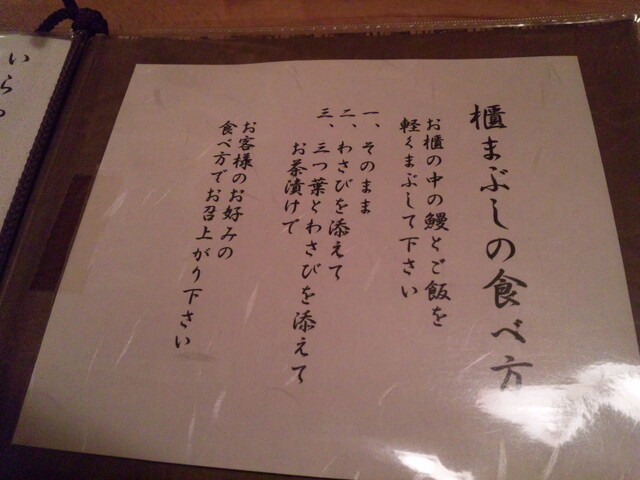 櫃まぶしの食べ方
お櫃の中の鰻とご飯を
軽くまぶして下さい
一、そのまま
二、わさびを添えて
三、三つ葉とわさびを添えて
お茶漬けで
お客様のお好みの
食べ方でお召上がり下さい
いらっ